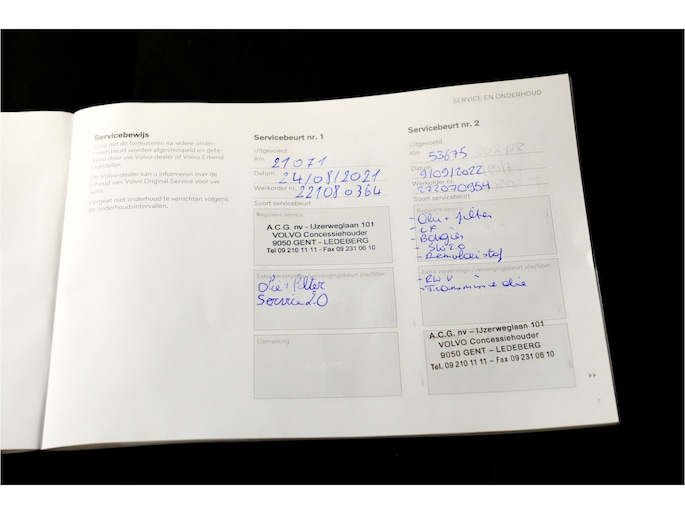 SERVICE EN ONDERHOUD
Servicebewijs
Zorg dat de formulieren na iedere onder-
houdsbeurt worden afgestempeld en gete-
kend door uw Volvo-dealer of Volvo Erkend
Hersteller.
De Volvo-dealer kan u informeren over de
inhoud van Volvo Original Service voor uw
auto.
Vergeet niet onderhoud te verrichten volgens
de onderhoudsintervallen.
Servicebeurt nr. 1
Uitgevoerd
Km 21071
Datum 24/08/2021
Werkorder nr. 221080364
Soort servicebeurt
Reguliere service
A.C.G. nv - IJzerweglaan 101
VOLVO Concessiehouder
9050 GENT - LEDEBERG
Tel 09 210 11 11 - Fax 09 231 06 10
Extra verversings-/vervangingsbeurt olie/filter
Olie + filter
Service 2.0
Opmerking
Servicebeurt nr. 2
Uitgevoerd
Km 53675
Datum 9/09/2022
Werkorder nr. 222070954
Soort servicebeurt
Reguliere service
- Olie + filter
- Bougies
- Remvloeistof
Extra verversings-/vervangingsbeurt olie/filter
- Transmissie olie
A.C.G. nv - IJzerweglaan 101
VOLVO Concessiehouder
9050 GENT - LEDEBERG
Tel. 09 210 11 11 - Fax 09 231 06 10
7